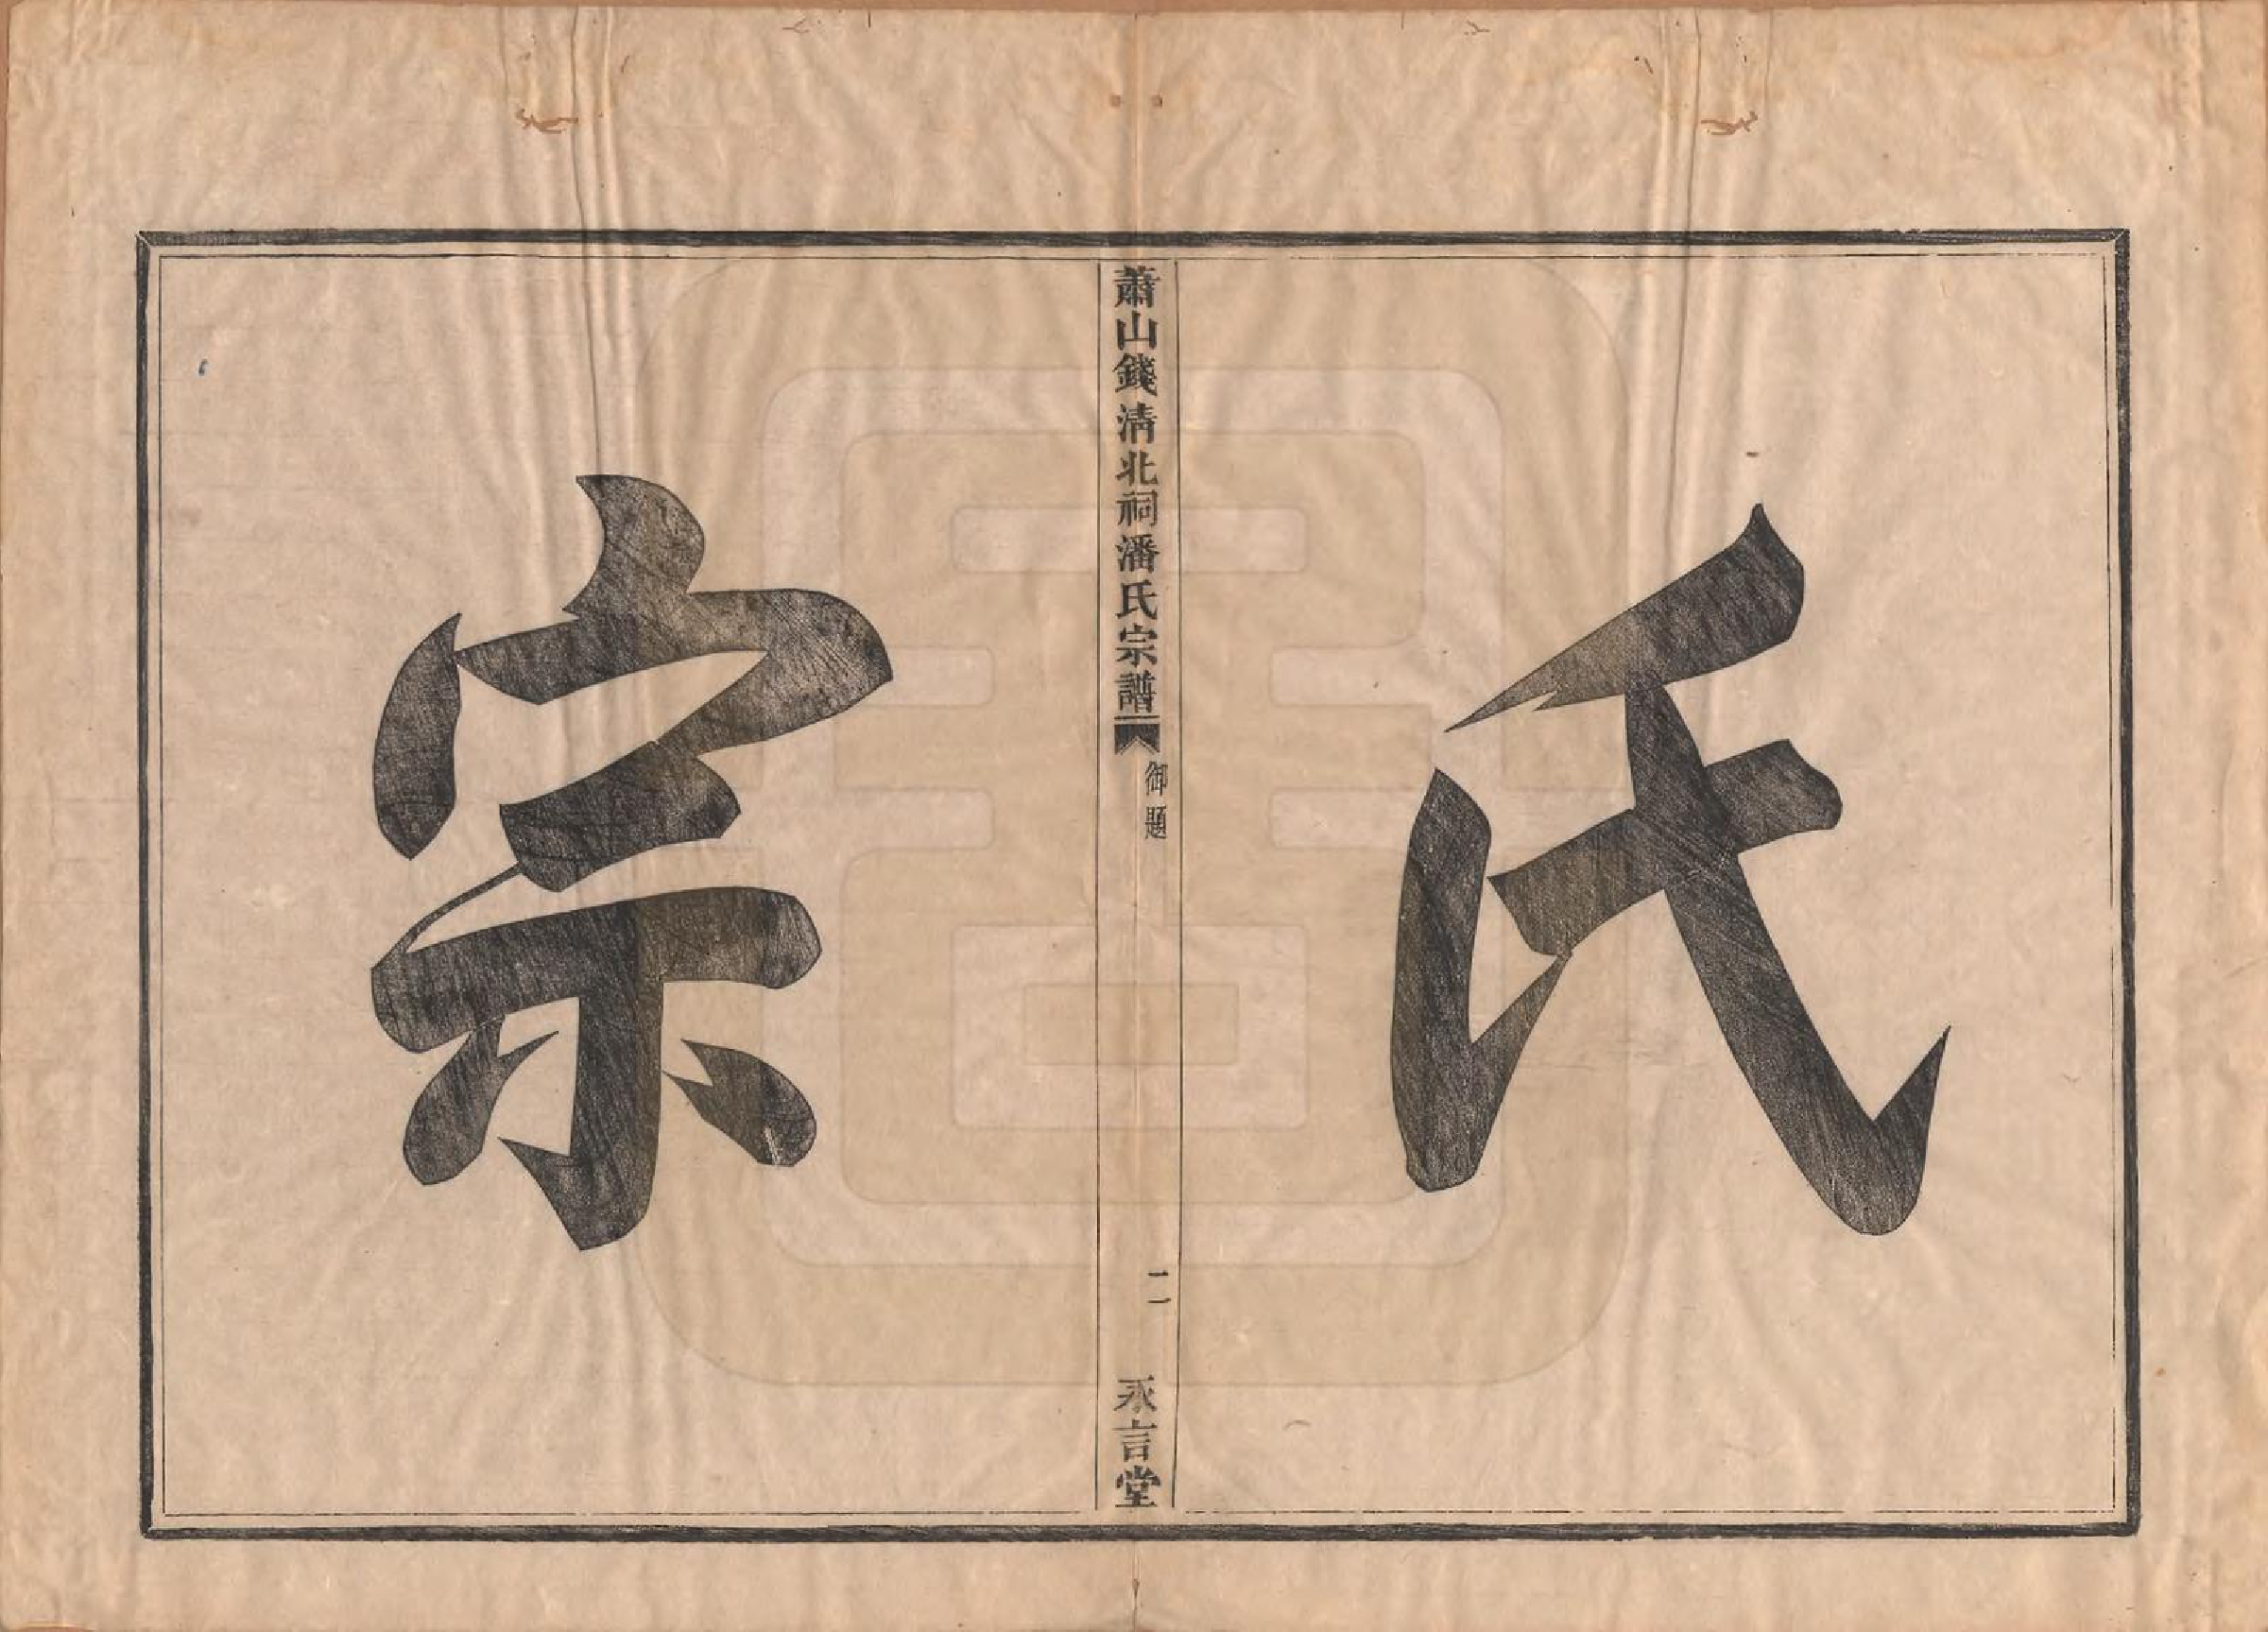 氏
蕭山錢清北祠潘氏宗譜
御題
二
永言堂
宗